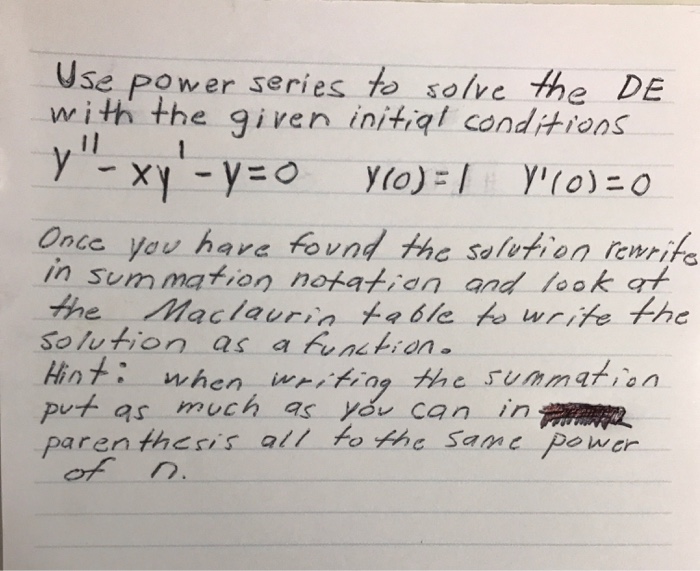 Use power series to solve the DE
with the given initial conditions
y'' - xy' - y = 0 y(0) = 1 y'(0) = 0
Once you have found the solution rewrite
in summation notation and look at
the Maclaurin table to write the
solution as a function.
Hint: when writing the summation
put as much as you can in
parenthesis all to the same power
of n.